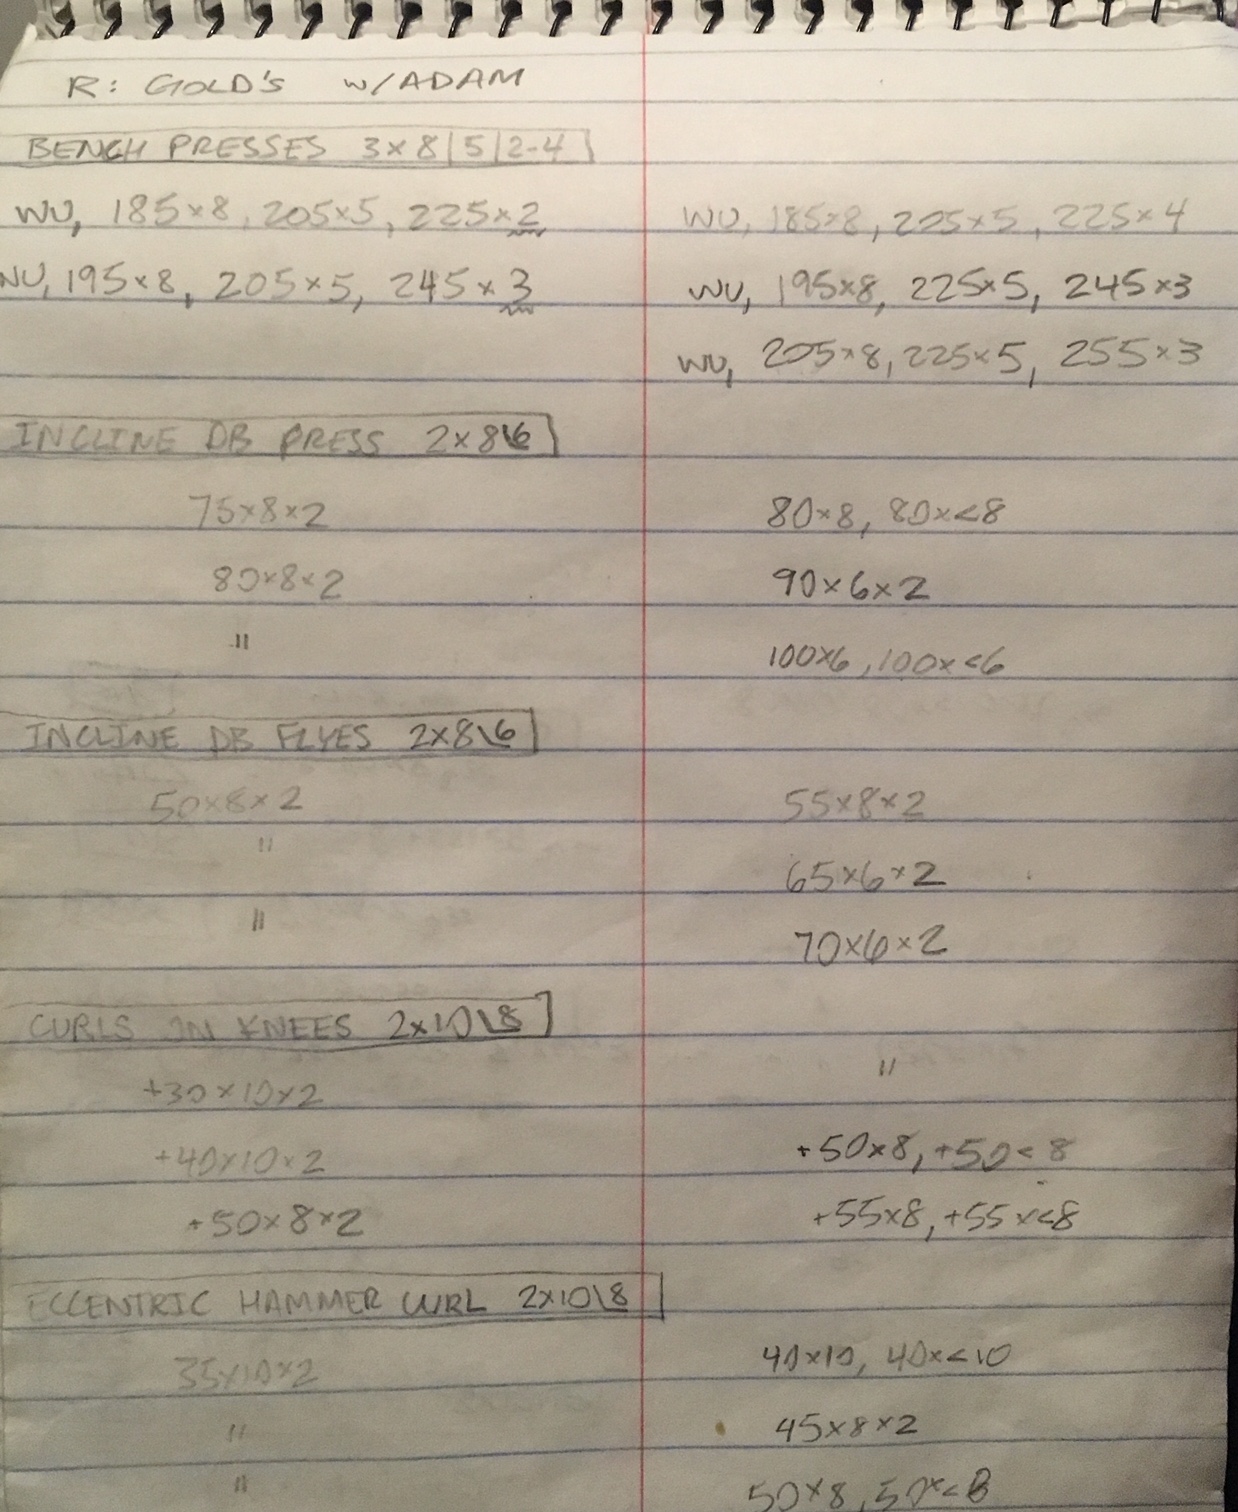 R: GOLD'S W/ADAM
BENCH PRESSES 3×8|5|2-4
WU, 185×8, 205×5, 225×2 WU, 185×8, 205×5, 225×4
WU, 195×8, 205×5, 245×3 WU, 195×8, 225×5, 245×3
WU, 205×8, 225×5, 255×3
INCLINE DB PRESS 2×8\6
75×8×2 80×8, 80×<8
80×8×2 90×6×2
" 100×6, 100×<6
INCLINE DB FLYES 2×8\6
50×8×2 55×8×2
" 65×6×2
" 70×6×2
CURLS IN KNEES 2×10\8
+30×10×2 "
+40×10×2 +50×8, +50<8
+50×8×2 +55×8, +55×<8
ECCENTRIC HAMMER CURL 2×10\8
35×10×2 40×10, 40×<10
" 45×8×2
" 50×8, 50×<8